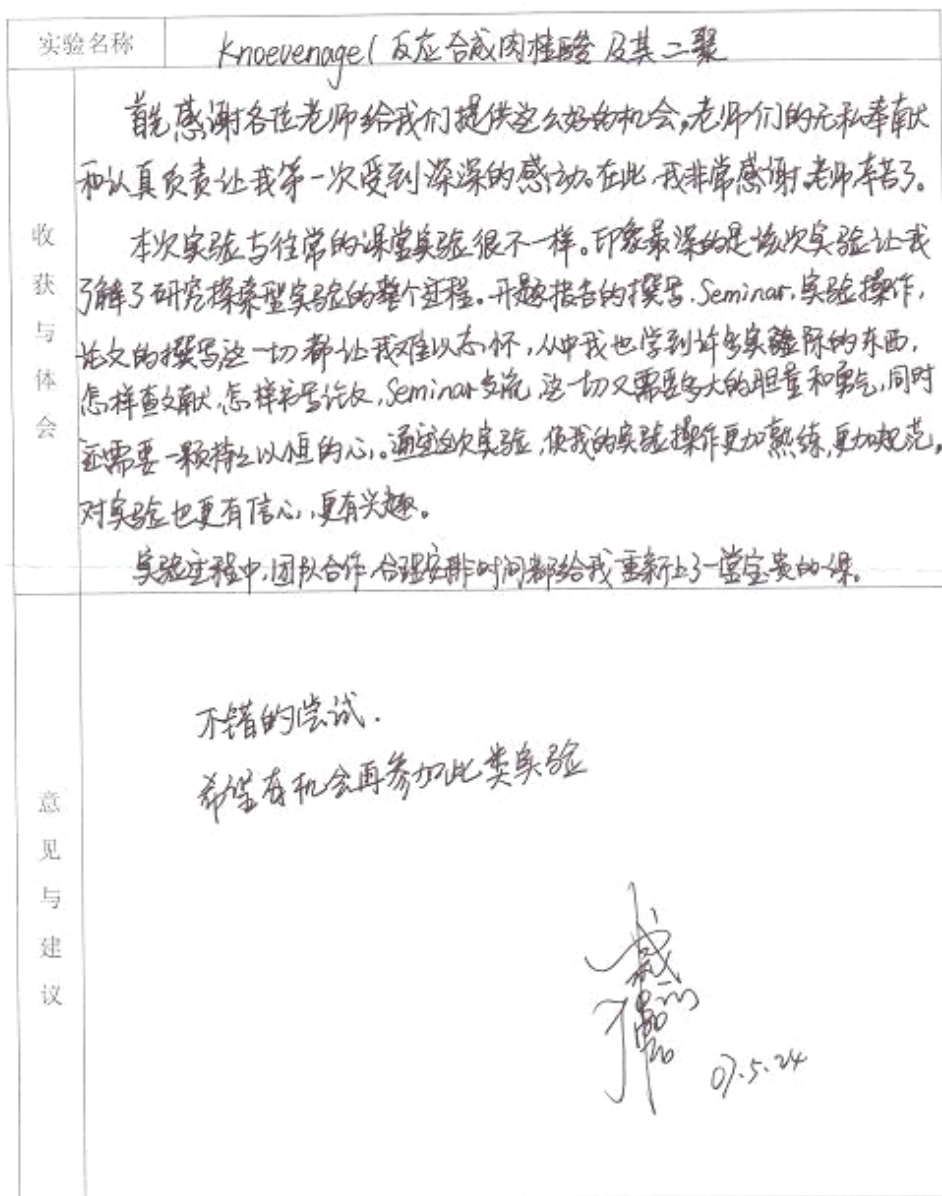 实验名称 Knoevenagel反应合成肉桂酸及其二聚
收获与体会
首先感谢各位老师给我们提供这么好的机会,老师们的无私奉献
和认真负责让我第一次受到深深的感动。在此,我非常感谢,老师辛苦了。
本次实验与往常的课堂实验很不一样。印象最深的是该次实验让我
了解了研究探索型实验的整个过程。开题报告的撰写,Seminar,实验操作,
论文的撰写这一切都让我难以忘怀,从中我也学到许多实际的东西,
怎样查文献,怎样书写论文,Seminar交流,这一切又需要多大的胆量和勇气,同时
还需要一颗持之以恒的心。通过这次实验,使我的实验操作更加熟练,更加规范。
对实验也更有信心,更有兴趣。
实验过程中,团队合作,合理安排时间都给我重新上了一堂宝贵的课。
意见与建议
不错的尝试.
希望有机会再参加此类实验
07.5.24